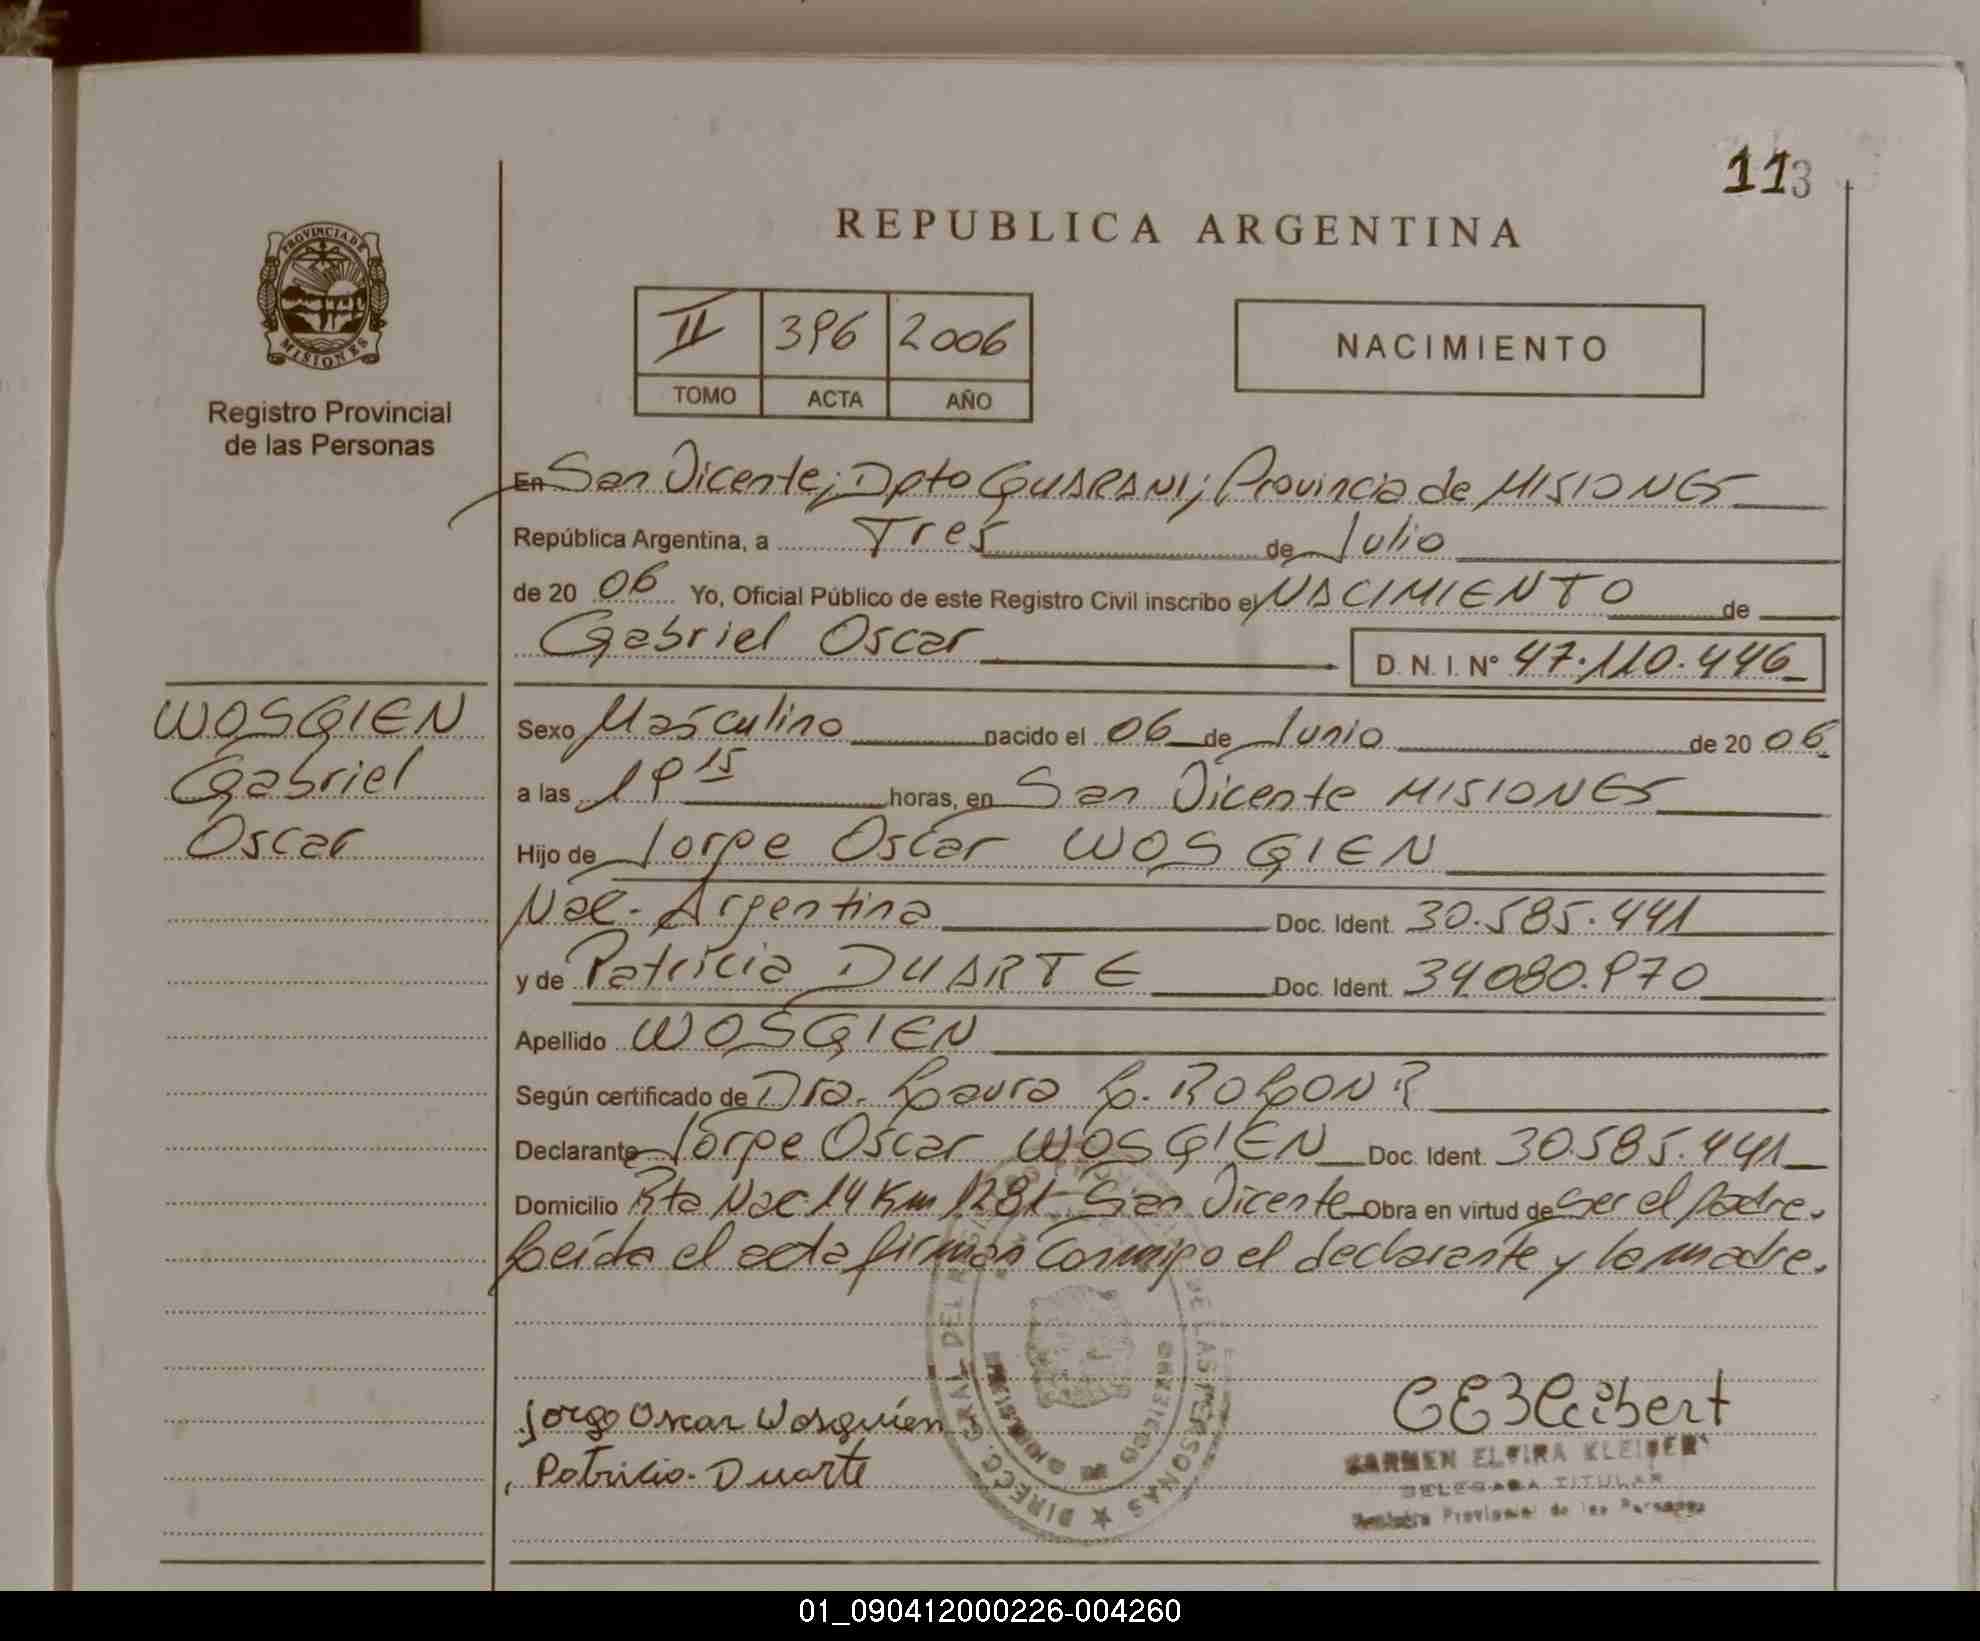 113
REPUBLICA ARGENTINA
PROVINCIA DE
MISIONES
Registro Provincial
de las Personas
II 396 2006
TOMO ACTA AÑO
NACIMIENTO
En San Vicente; Dpto GUARANI; Provincia de MISIONES
República Argentina, a Tres de Julio
de 20 06 Yo, Oficial Público de este Registro Civil inscribo el NACIMIENTO de
Gabriel Oscar D. N. I. N° 47.110.446
WOSGIEN
Gabriel
Oscar
Sexo Masculino nacido el 06 de Junio de 20 06
a las 19 15 horas, en San Vicente MISIONES
Hijo de Jorge Oscar WOSGIEN
Nac. Argentina Doc. Ident. 30.585.441
y de Patricia DUARTE Doc. Ident. 34.080.970
Apellido WOSGIEN
Según certificado de Dra. Laura L. ROLON R
Declarante Jorge Oscar WOSGIEN Doc. Ident. 30.585.441
Domicilio Rta Nac. 14 Km 1281 San Vicente Obra en virtud de ser el padre.
Leída el acta firman conmigo el declarante y la madre.
Jorge Oscar Wosguien
Patricia Duarte
CEKleibert
CARMEN ELVIRA KLEIBERT
DELEGADA TITULAR
Registro Provincial de las Personas
DIRECC. GRAL. DEL R DE LAS PERSONAS
01_090412000226-004260